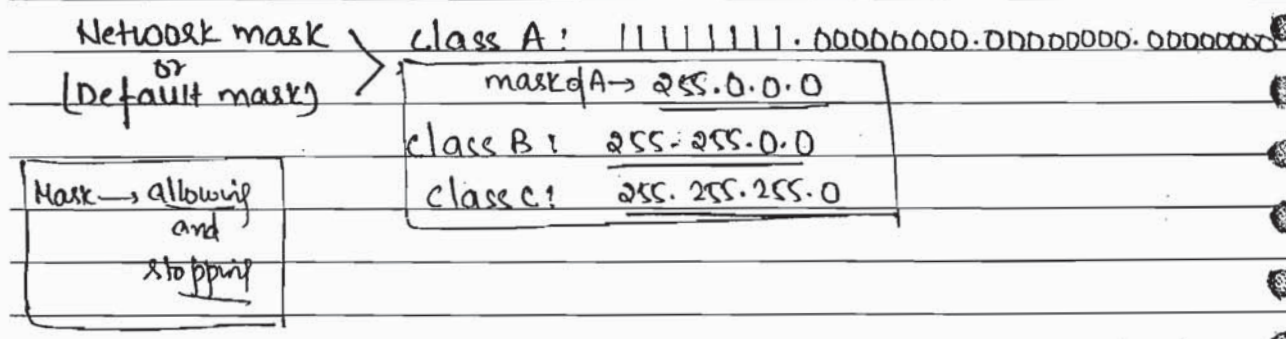 Network mask
or
(Default mask)
class A: 11111111.00000000.00000000.00000000
mask of A → 255.0.0.0
class B: 255.255.0.0
class C: 255.255.255.0
Mask → allowing
and
stopping